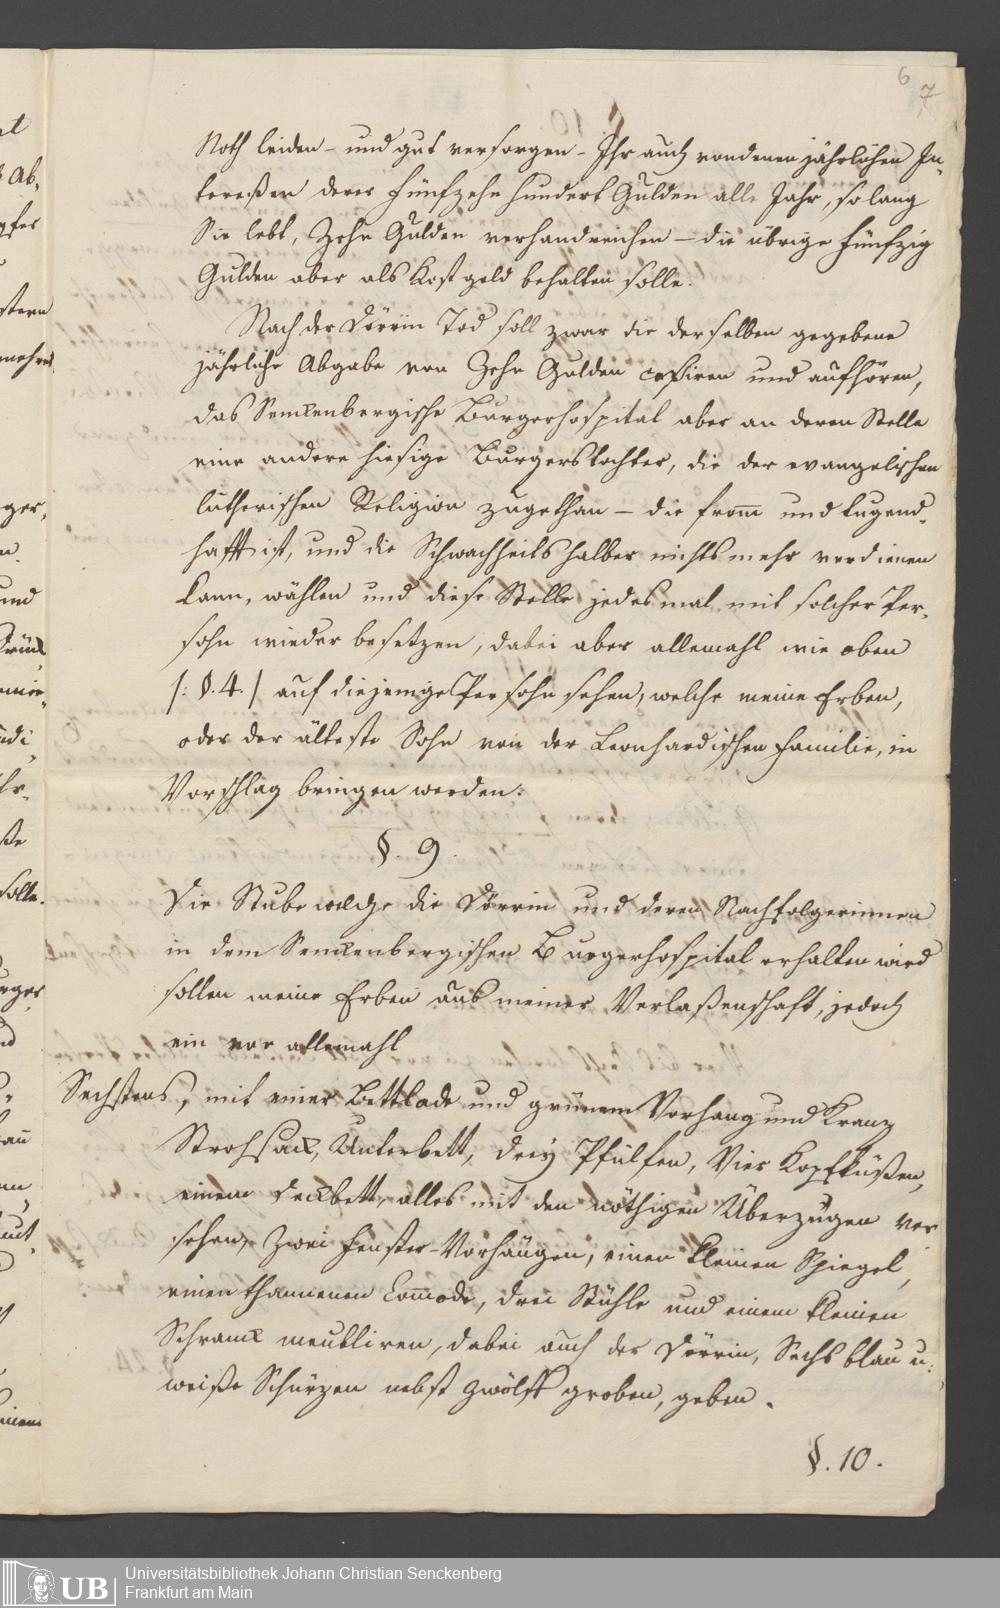 6
7
Noth leiden - und gut versorgen - Ihr auch von denen jährlichen In-
tereßen derer Fünfzehn hundert Gulden alle Jahr, so lang
Sie lebt, Zehn Gulden verhandreichen - die übrige Fünfzig
Gulden aber als Kostgeld behalten solle.
Nach der Dörrin Tod soll zwar die derselben gegebene
jährliche Abgabe von Zehn Gulden cessiren und aufhören,
das Senckenbergische Burgerhospital aber an deren Stelle
eine andere hiesige Burgerstochter, die der evangelischen
lutherischen Religion zugethan - die from und tugend-
hafft ist, und die Schwachheits halber nichts mehr verdienen
kann, wählen und diese Stelle jedesmal mit solcher Per-
sohn wieder besetzen, dabei aber allemahl wie oben
/: §. 4. / auf diejenige Persohn sehen, welche meine Erben,
oder der älteste Sohn von der Leonhardischen Familie, in
Vorschlag bringen werden.
§. 9.
Die Stube welche die Dörrin und deren Nachfolgerinnen
in dem Senckenbergischen Burgerhospital erhalten wird
sollen meine Erben aus meiner Verlaßenschaft, jedoch
ein vor allemahl
Sechstens, mit einer Bettlade und grünem Vorhang und Kranz
Strohsack, Unterbett, drey Pfülfen, Vier Kopfküßen,
einem Deckbett, alles mit den nöthigen Überzügen ver
sehen, Zwei Fenster-Vorhängen, einen kleinen Spiegel,
einen thannenen Comode, drei Stühle und einem kleinen
Schranck meubliren, dabei auch der Dörrin, Sechs blau u.
weiße Schürzen nebst zwölff groben, geben.
§. 10.
UB
Universitätsbibliothek Johann Christian Senckenberg
Frankfurt am Main